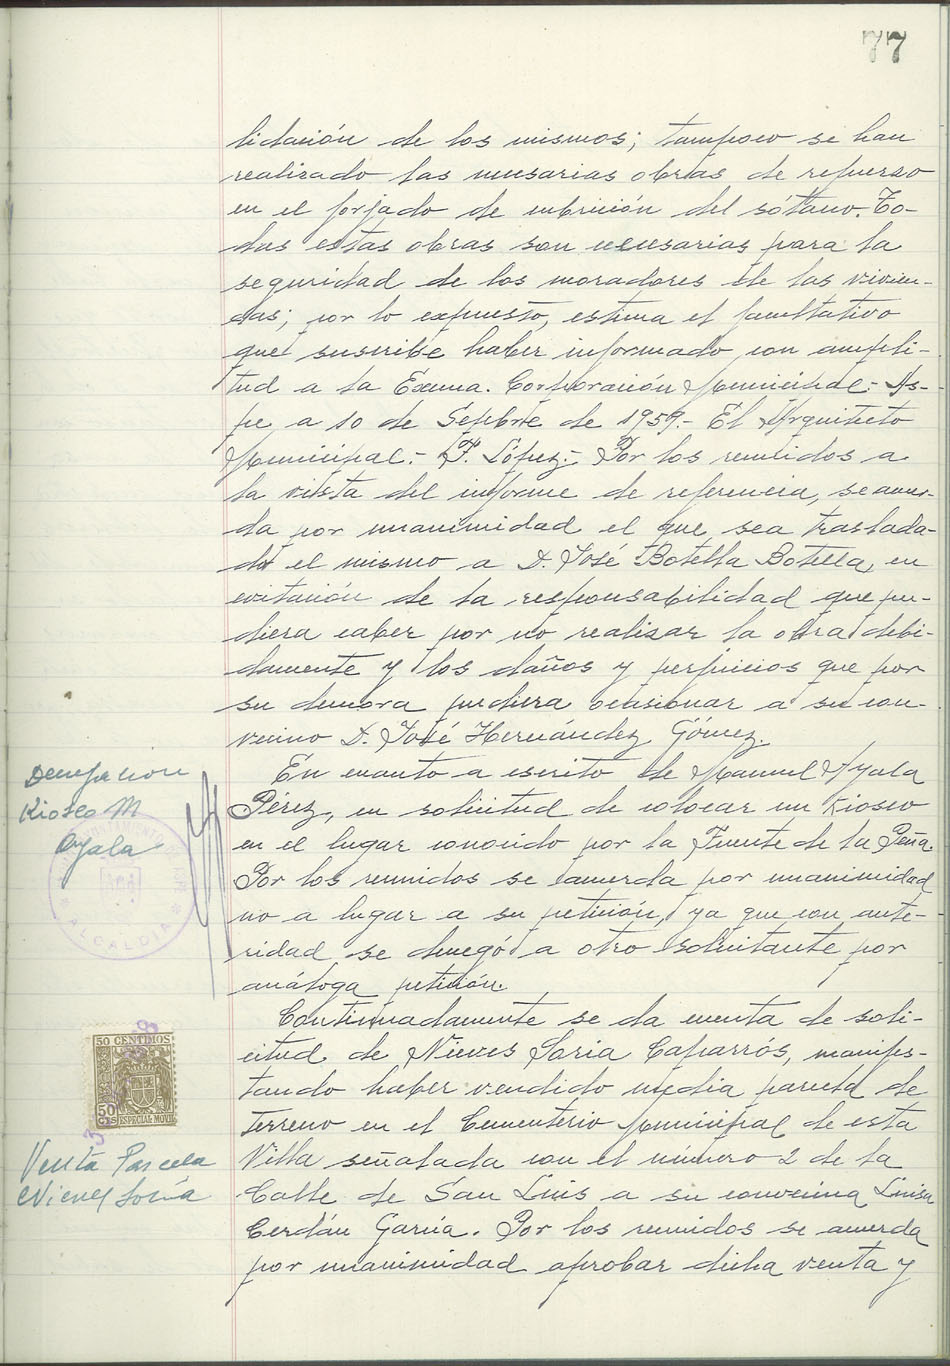 77
lidación de los mismos; tampoco se han
realizado las necesarias obras de refuerzo
en el forjado de cubrición del sótano. To-
das estas obras son necesarias para la
seguridad de los moradores de las vivien-
das; por lo expuesto, estima el facultativo
que suscribe haber informado con ampli-
tud a la Excma. Corporación Municipal.- As-
pe a 10 de Sepbre de 1959.- El Arquitecto
Municipal.- F. López.- Por los reunidos a
la vista del informe de referencia, se acuer-
da por unanimidad el que sea traslada-
do el mismo a D. José Botella Botella, en
evitación de la responsabilidad que pu-
diera caber por no realizar la obra debi-
damente y los daños y perjuicios que por
su demora pudiera ocasionar a su con-
vecino D. José Hernández Gómez.
Denegacion
Kiosco M
Ayala
AYUNTAMIENTO DE
ALCALDIA
En cuanto a escrito de Manuel Ayala
Pérez, en solicitud de colocar un kiosco
en el lugar conocido por la Fuente de la Peña.
Por los reunidos se acuerda por unanimidad
no a lugar a su petición, ya que con ante-
ridad se denegó a otro solicitante por
análoga petición.
50 CENTIMOS
50
CTS ESPECIAL MOVIL
Venta Parcela
Nieves Soria
Continuadamente se da cuenta de soli-
citud de Nieves Soria Caparrós, manifes-
tando haber vendido media parcela de
terreno en el Cementerio Municipal de esta
Villa señalada con el número 2 de la
Calle de San Luis a su convecina Luisa
Cerdán García. Por los reunidos se acuerda
por unanimidad aprobar dicha venta y